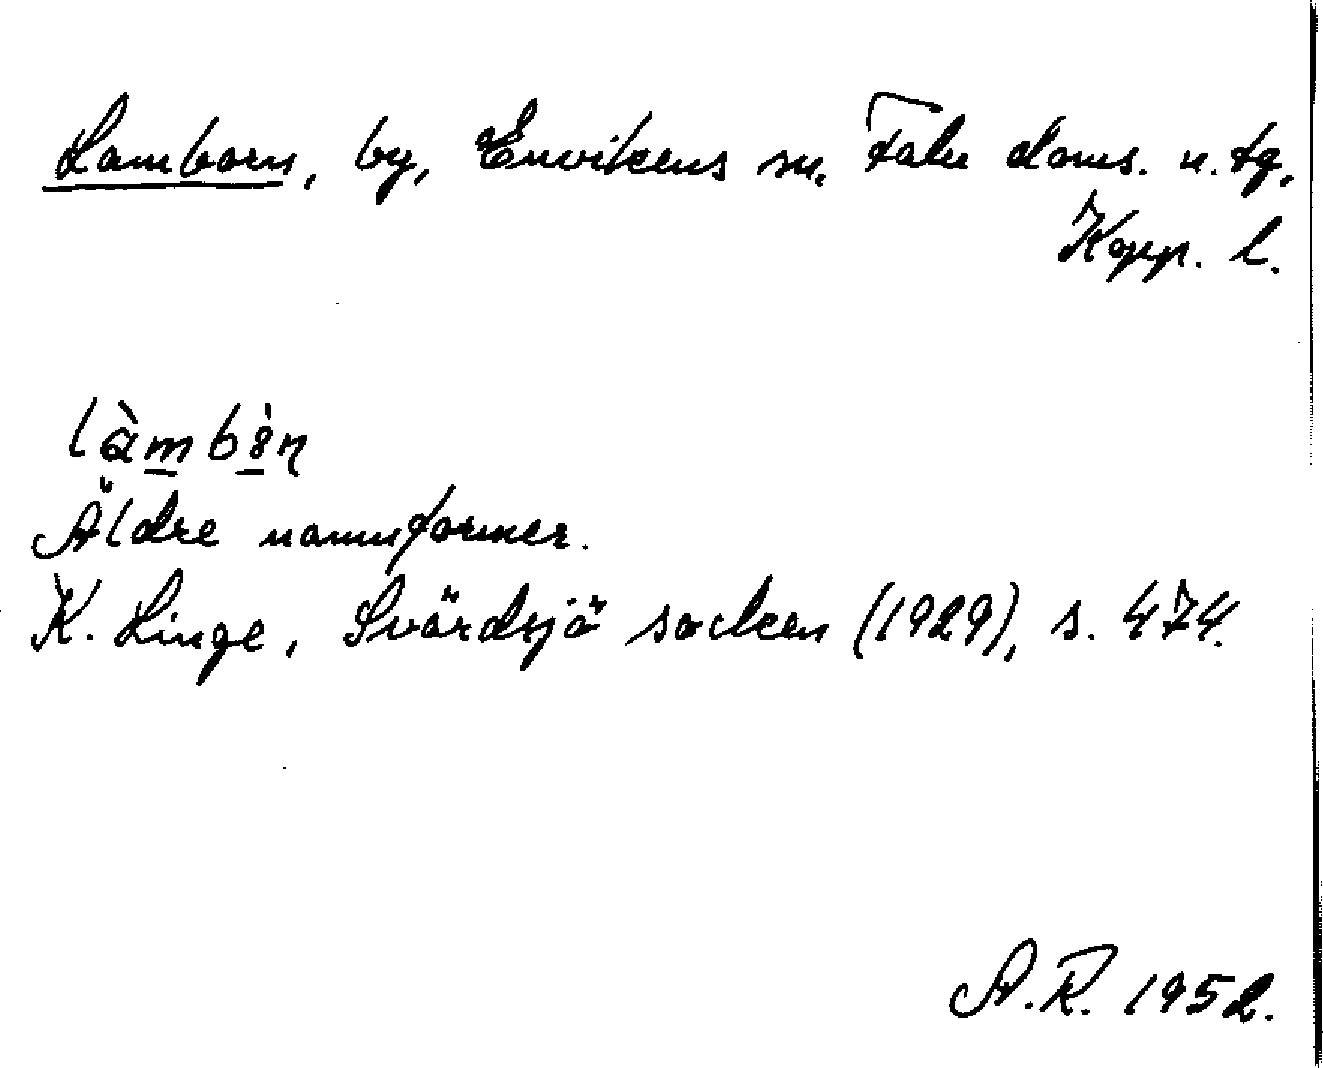 Lamborn, by, Envikens sn. Falu doms. n. tg.
Kopp. l.
làmbòn
Äldre namnformer.
K. Linge, Svärdsjö socken (1929), s. 474.
A.R. 1952.